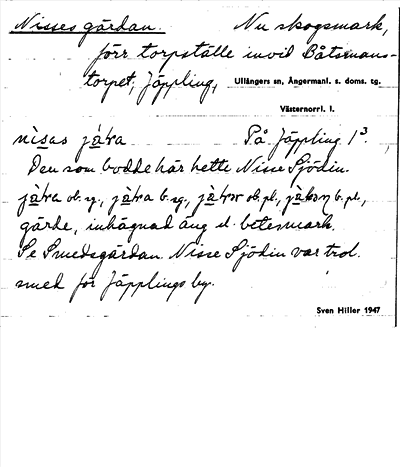 Nisses gärdan. Nu skogsmark,
förr torpställe invid Båtsmans-
torpet, Jäppling, Ullångers sn, Ångermanl. s. doms. tg.
Västernorrl. l.
På Jäppling 1³.
Den som bodde här hette Nisse Sjödin.
gärde, inhägnad äng el. betesmark.
Se Smedsgärdan. Nisse Sjödin var trol.
smed för Jäpplings by.
Sven Hiller 1947